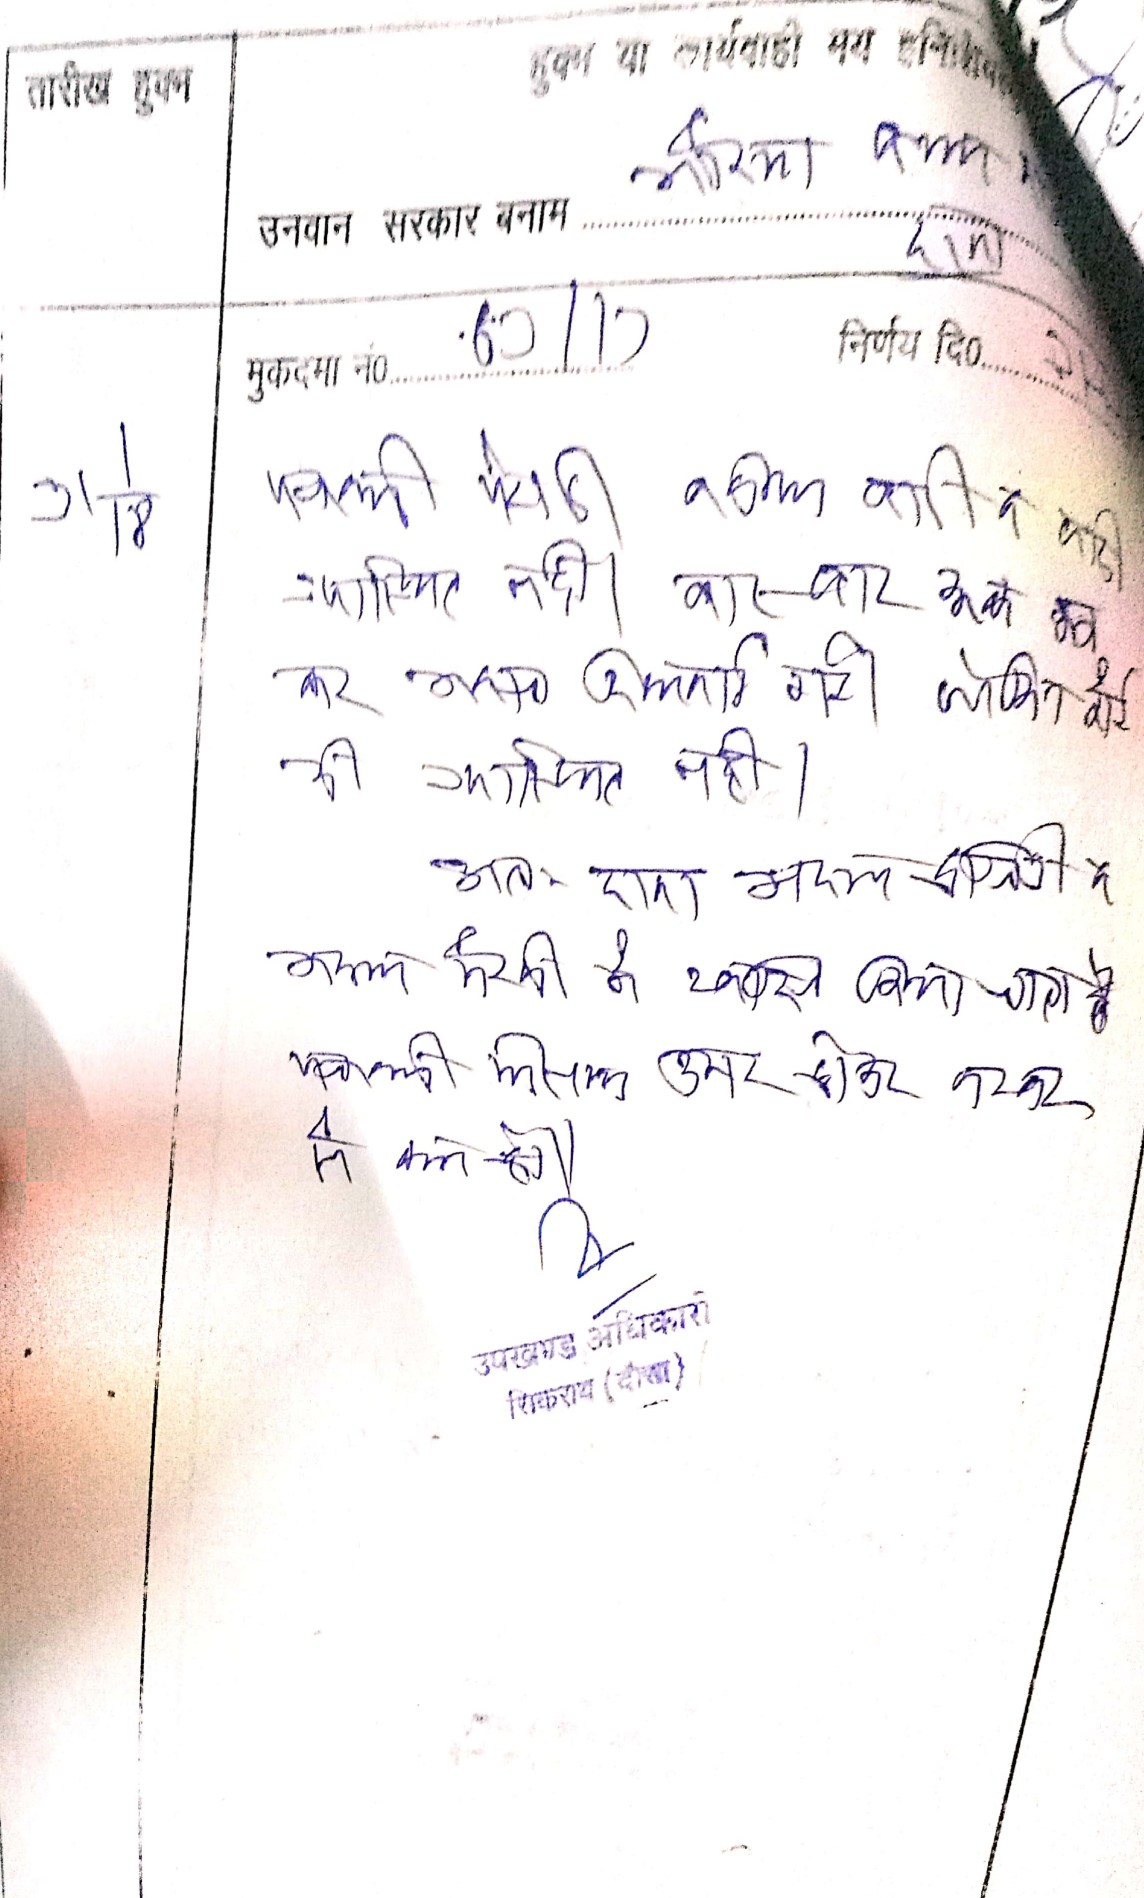 तारीख हुक्म
हुक्म या कार्यवाही मय इनिशियल
बनाम
उनवान सरकार बनाम
मुकदमा नं० 60/17 निर्णय दि०
31/1/18
पत्रावली पेश हुई। वकील वादी व वादी
उपस्थित नहीं। बार-बार
कर आवाज दिलवाई गई। लेकिन कोई
भी उपस्थित नहीं।
अतः दावा अदम हाजरी व
अदम पैरवी में खारिज किया जाता है
पत्रावली फैसल शुमार होकर नम्बर
से कम हो।
उपखण्ड अधिकारी
सिकराय (दौसा)